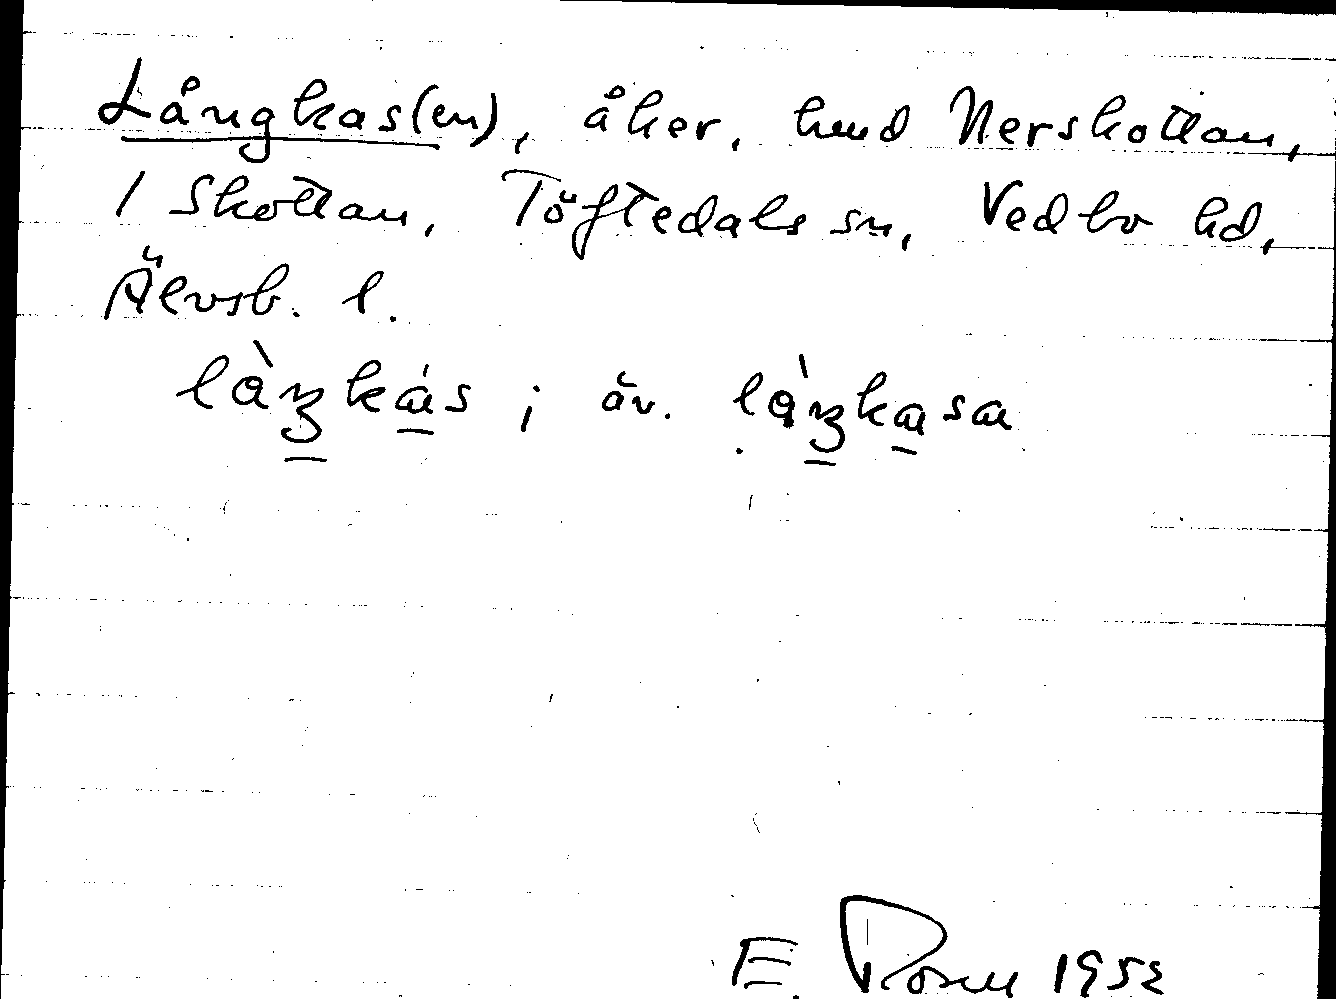 Långkas(en), åker, hmd Nerskottan,
1 Skottan, Töftedals sn, Vedbo hd,
Älvsb. l.
làŋkás ; äv. làŋkasa
E. Rosell 1952